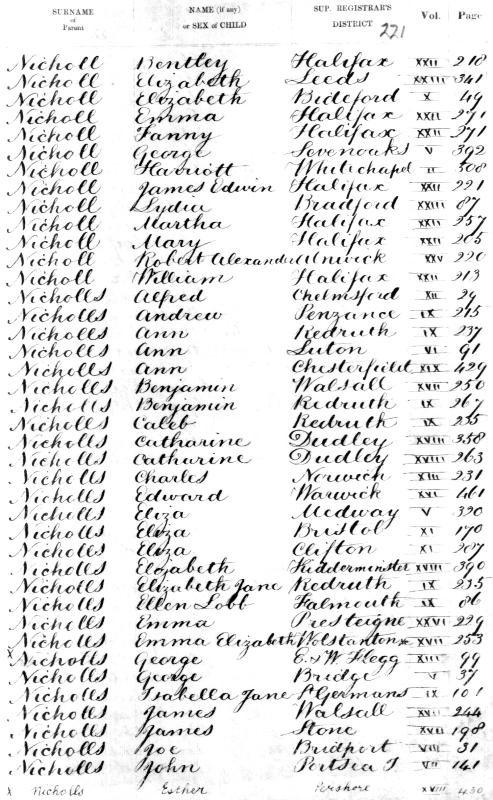 SURNAME of Parent NAME (if any) or SEX of CHILD SUP. REGISTRAR'S DISTRICT Vol. Page
221
Nicholl Bentley Halifax XXII 218
Nicholl Elizabeth Leeds XXIII 341
Nicholl Elizabeth Bideford X 49
Nicholl Emma Halifax XXII 271
Nicholl Fanny Halifax XXII 271
Nicholl George Sevenoaks V 392
Nicholl Harriott Whitechapel II 508
Nicholl James Edwin Halifax XXII 221
Nicholl Lydia Bradford XXIII 87
Nicholl Martha Halifax XXII 257
Nicholl Mary Halifax XXII 205
Nicholl Robert Alexander Alnwick XXV 220
Nicholl William Halifax XXII 213
Nicholls Alfred Chelmsford XII 29
Nicholls Andrew Penzance IX 275
Nicholls Ann Redruth IX 237
Nicholls Ann Luton VI 91
Nicholls Ann Chesterfield XIX 429
Nicholls Benjamin Walsall XVII 250
Nicholls Benjamin Redruth IX 267
Nicholls Caleb Redruth IX 235
Nicholls Catharine Dudley XVIII 358
Nicholls Catharine Dudley XVIII 263
Nicholls Charles Norwich XIII 231
Nicholls Edward Warwick XVI 461
Nicholls Eliza Medway V 390
Nicholls Eliza Bristol XI 170
Nicholls Eliza Clifton XI 207
Nicholls Elizabeth Kidderminster XVIII 390
Nicholls Elizabeth Jane Redruth IX 235
Nicholls Ellen Lobb Falmouth IX 86
Nicholls Emma Presteigne XXVI 229
Nicholls Emma Elizabeth Wolstanton XVII 253
x Nicholls George E. & W. Flegg XIII 99
Nicholls George Bridge V 37
Nicholls Isabella Jane St Germans IX 101
Nicholls James Walsall XVII 244
Nicholls James Stone XVII 198
Nicholls Joe Bridport VIII 31
Nicholls John Portsea I VII 141
x Nicholls Esther Pershore XVIII 430